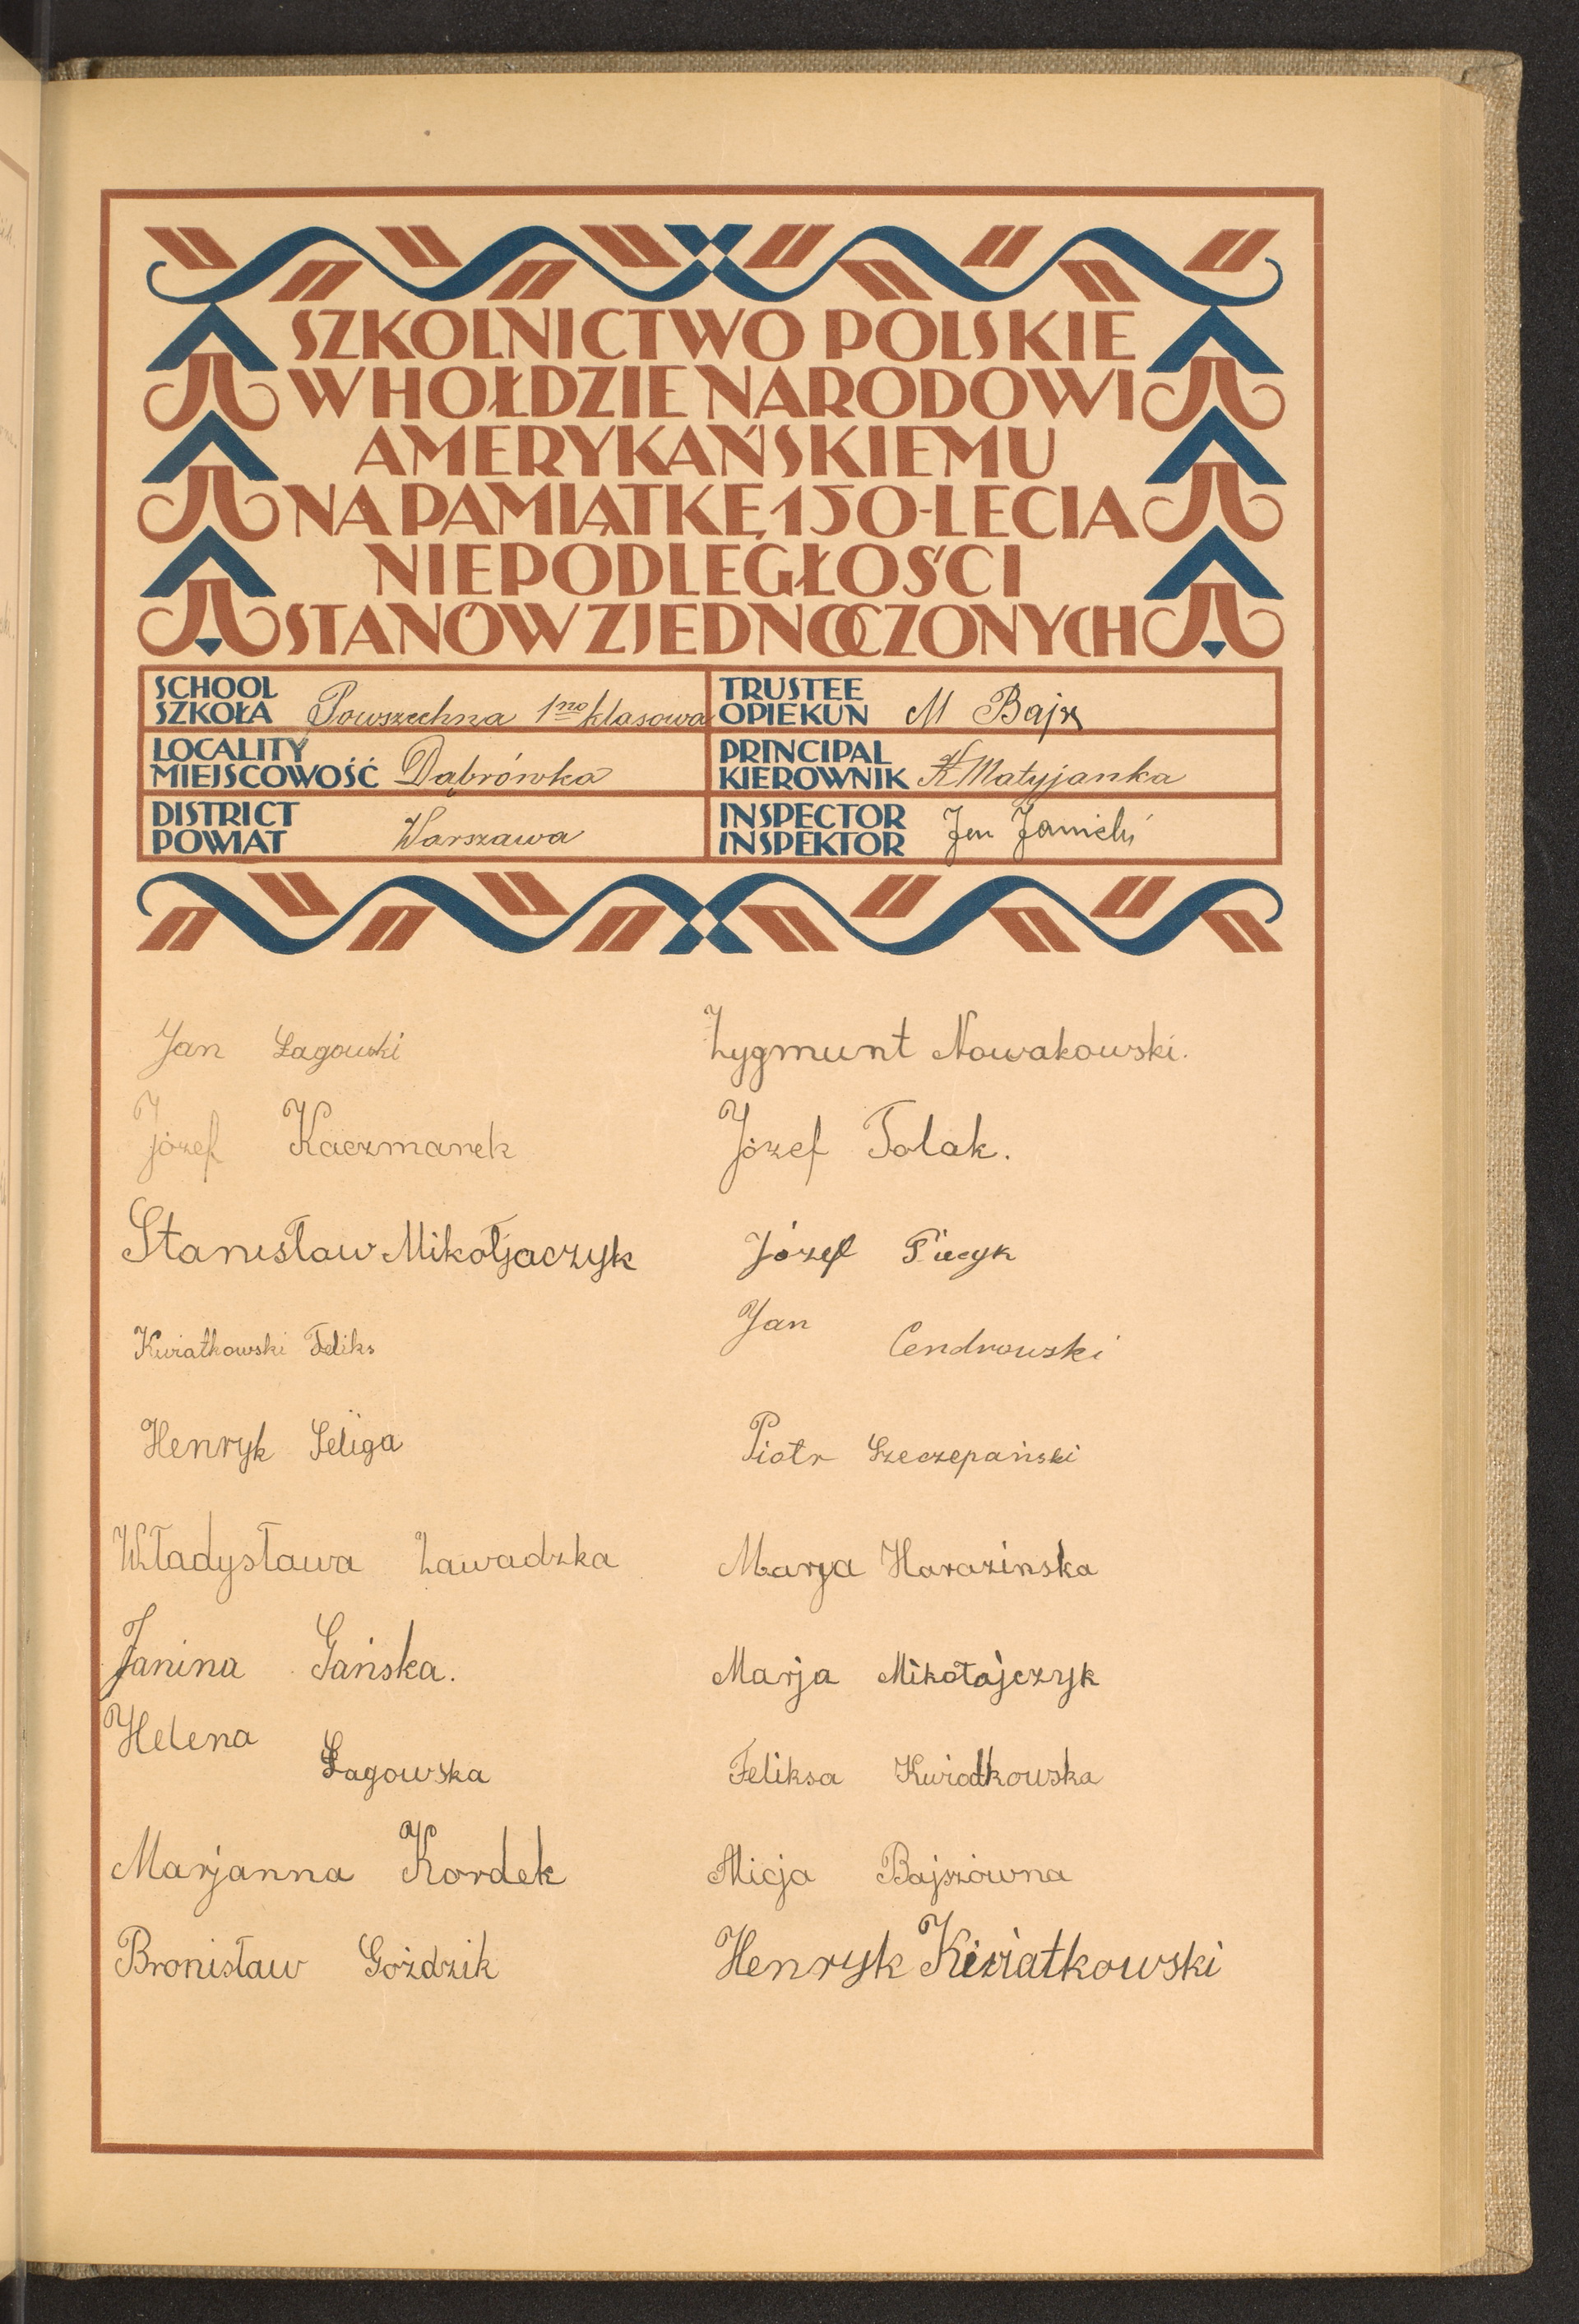 SZKOLNICTWO POLSKIE
W HOŁDZIE NARODOWI
AMERYKAŃSKIEMU
NA PAMIĄTKĘ 150-LECIA
NIEPODLEGŁOŚCI
STANÓW ZJEDNOCZONYCH
SCHOOL
SZKOŁA Powszechna 1no klasowa
LOCALITY
MIEJSCOWOŚĆ Dąbrówka
DISTRICT
POWIAT Warszawa
TRUSTEE
OPIEKUN M Bajs
PRINCIPAL
KIEROWNIK K Matyjanka
INSPECTOR
INSPEKTOR Jan Janicki
Jan Łagowski
Józef Kaczmarek
Stanisław Mikołjaczyk
Kwiatkowski Feliks
Henryk Seliga
Władysława Zawadzka
Janina Gańska.
Helena Łagowska
Marjanna Kordek
Bronisław Goździk
Zygmunt Nowakowski.
Józef Polak.
Józef
Jan Cendrowski
Piotr Szeczepański
Marja Harazinska
Marja Mikołajczyk
Feliksa Kwiatkowska
Alicja Bajszówna
Henryk Kwiatkowski